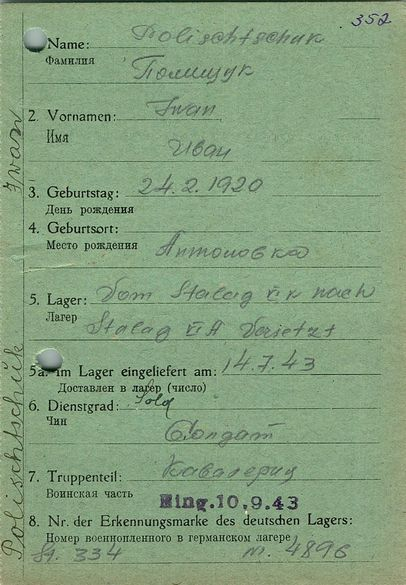 352
Name: Polischtschuk
Фамилия Полищук
2. Vornamen: Iwan
Имя
Иван
3. Geburtstag: 24.2.1920
День рождения
4. Geburtsort:
Место рождения Антоновка
5. Lager: Vom Stalag VI K nach
Лагер Stalag VI A Versetzt
5a. im Lager eingeliefert am: 14.7.43
Доставлен в лагер (число)
6. Dienstgrad: Sold
Чин Солдат
7. Truppenteil: Кавалериц
Воинская часть
Eing. 10.9.43
8. Nr. der Erkennungsmarke des deutschen Lagers:
Номер военнопленного в германском лагере
St. 334 nr. 4896
Polischtschuk Iwan